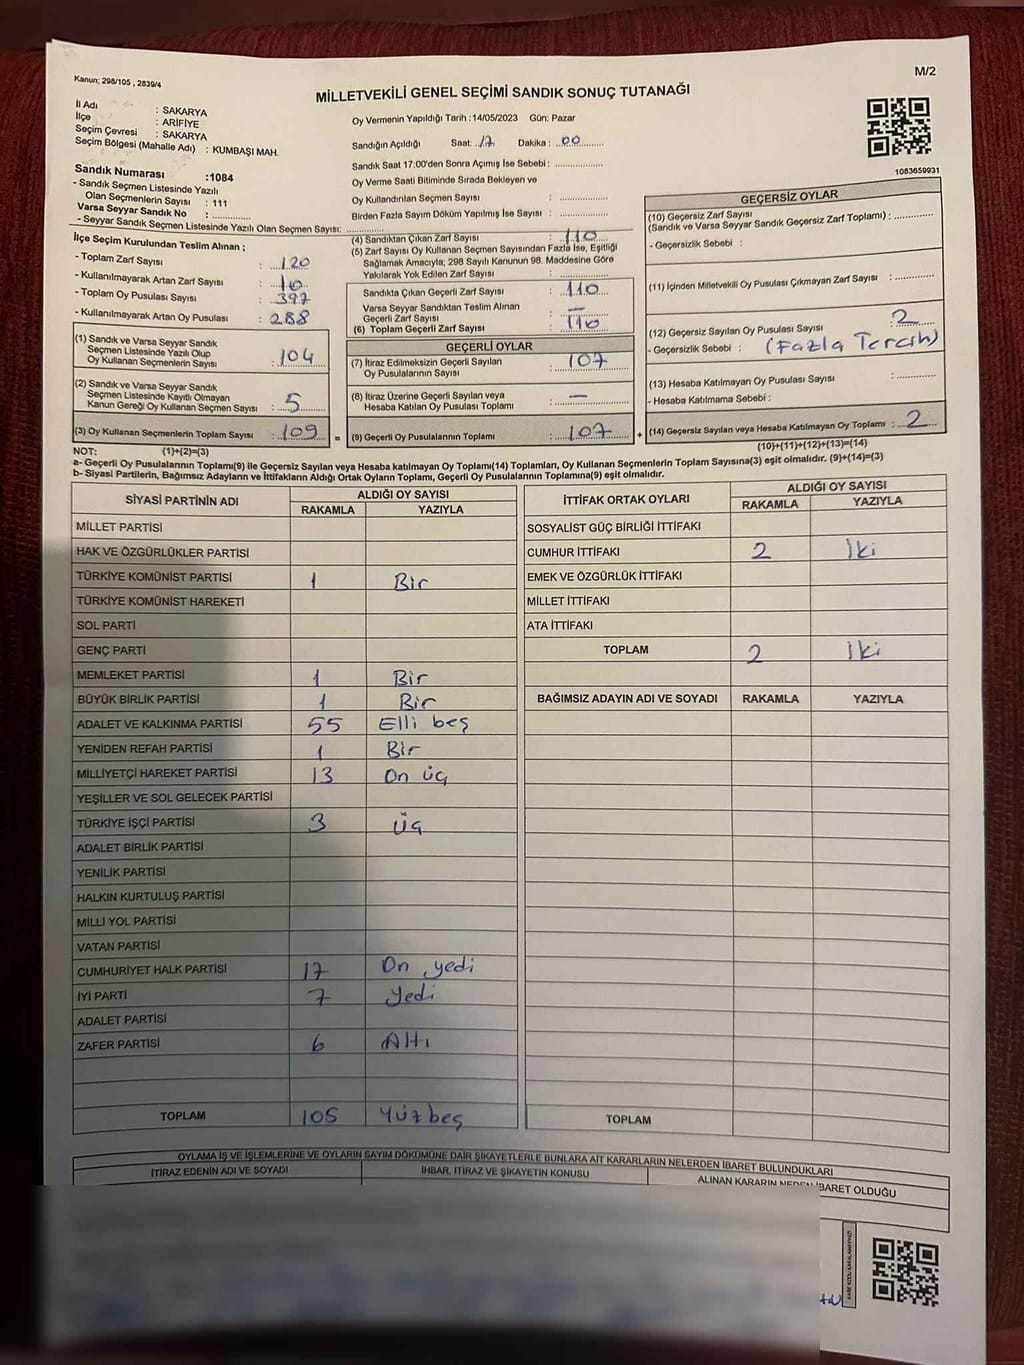 M/2
Kanun; 298/105 , 2839/4
MİLLETVEKİLİ GENEL SEÇİMİ SANDIK SONUÇ TUTANAĞI
İl Adı : SAKARYA
İlçe : ARİFİYE
Seçim Çevresi : SAKARYA
Seçim Bölgesi (Mahalle Adı) : KUMBAŞI MAH.
Sandık Numarası :1084
- Sandık Seçmen Listesinde Yazılı
Olan Seçmenlerin Sayısı : 111
Varsa Seyyar Sandık No :
- Seyyar Sandık Seçmen Listesinde Yazılı Olan Seçmen Sayısı:
Oy Vermenin Yapıldığı Tarih :14/05/2023 Gün: Pazar
Sandığın Açıldığı Saat: 17 Dakika : 00
Sandık Saat 17:00'den Sonra Açımış İse Sebebi :
Oy Verme Saati Bitiminde Sırada Bekleyen ve
Oy Kullandırılan Seçmen Sayısı :
Birden Fazla Sayım Döküm Yapılmış İse Sayısı :
1083659931
İlçe Seçim Kurulundan Teslim Alınan ;
- Toplam Zarf Sayısı : 120
- Kullanılmayarak Artan Zarf Sayısı : 10
- Toplam Oy Pusulası Sayısı : 397
- Kullanılmayarak Artan Oy Pusulası : 288
(1) Sandık ve Varsa Seyyar Sandık
Seçmen Listesinde Yazılı Olup
Oy Kullanan Seçmenlerin Sayısı : 104
(2) Sandık ve Varsa Seyyar Sandık
Seçmen Listesinde Kayıtlı Olmayan
Kanun Gereği Oy Kullanan Seçmen Sayısı : 5
(3) Oy Kullanan Seçmenlerin Toplam Sayısı : 109 =
(4) Sandıktan Çıkan Zarf Sayısı : 110
(5) Zarf Sayısı Oy Kullanan Seçmen Sayısından Fazla İse, Eşitliği
Sağlamak Amacıyla; 298 Sayılı Kanunun 98. Maddesine Göre
Yakılarak Yok Edilen Zarf Sayısı :
Sandıkta Çıkan Geçerli Zarf Sayısı : 110
Varsa Seyyar Sandıktan Teslim Alınan
Geçerli Zarf Sayısı : —
(6) Toplam Geçerli Zarf Sayısı : 110
GEÇERLİ OYLAR
(7) İtiraz Edilmeksizin Geçerli Sayılan
Oy Pusulalarının Sayısı : 107
(8) İtiraz Üzerine Geçerli Sayılan veya
Hesaba Katılan Oy Pusulası Toplamı : —
(9) Geçerli Oy Pusulalarının Toplamı : 107 +
GEÇERSİZ OYLAR
(10) Geçersiz Zarf Sayısı
(Sandık ve Varsa Seyyar Sandık Geçersiz Zarf Toplamı) :
- Geçersizlik Sebebi :
(11) İçinden Milletvekili Oy Pusulası Çıkmayan Zarf Sayısı :
(12) Geçersiz Sayılan Oy Pusulası Sayısı : 2
- Geçersizlik Sebebi : (Fazla Tercih)
(13) Hesaba Katılmayan Oy Pusulası Sayısı :
- Hesaba Katılmama Sebebi :
(14) Geçersiz Sayılan veya Hesaba Katılmayan Oy Toplamı : 2
(10)+(11)+(12)+(13)=(14)
NOT: (1)+(2)=(3)
a- Geçerli Oy Pusulalarının Toplamı(9) ile Geçersiz Sayılan veya Hesaba katılmayan Oy Toplamı(14) Toplamları, Oy Kullanan Seçmenlerin Toplam Sayısına(3) eşit olmalıdır. (9)+(14)=(3)
b- Siyasi Partilerin, Bağımsız Adayların ve İttifakların Aldığı Ortak Oyların Toplamı, Geçerli Oy Pusulalarının Toplamına(9) eşit olmalıdır.
SİYASİ PARTİNİN ADI ALDIĞI OY SAYISI
RAKAMLA YAZIYLA
MİLLET PARTİSİ
HAK VE ÖZGÜRLÜKLER PARTİSİ
TÜRKİYE KOMÜNİST PARTİSİ 1 Bir
TÜRKİYE KOMÜNİST HAREKETİ
SOL PARTİ
GENÇ PARTİ
MEMLEKET PARTİSİ 1 Bir
BÜYÜK BİRLİK PARTİSİ 1 Bir
ADALET VE KALKINMA PARTİSİ 55 Elli beş
YENİDEN REFAH PARTİSİ 1 Bir
MİLLİYETÇİ HAREKET PARTİSİ 13 On üç
YEŞİLLER VE SOL GELECEK PARTİSİ
TÜRKİYE İŞÇİ PARTİSİ 3 Üç
ADALET BİRLİK PARTİSİ
YENİLİK PARTİSİ
HALKIN KURTULUŞ PARTİSİ
MİLLİ YOL PARTİSİ
VATAN PARTİSİ
CUMHURİYET HALK PARTİSİ 17 On yedi
İYİ PARTİ 7 Yedi
ADALET PARTİSİ
ZAFER PARTİSİ 6 Altı
TOPLAM 105 Yüzbeş
İTTİFAK ORTAK OYLARI ALDIĞI OY SAYISI
RAKAMLA YAZIYLA
SOSYALİST GÜÇ BİRLİĞİ İTTİFAKI
CUMHUR İTTİFAKI 2 İki
EMEK VE ÖZGÜRLÜK İTTİFAKI
MİLLET İTTİFAKI
ATA İTTİFAKI
TOPLAM 2 İki
BAĞIMSIZ ADAYIN ADI VE SOYADI RAKAMLA YAZIYLA
TOPLAM
OYLAMA İŞ VE İŞLEMLERİNE VE OYLARIN SAYIM DÖKÜMÜNE DAİR ŞİKAYETLERLE BUNLARA AİT KARARLARIN NELERDEN İBARET BULUNDUKLARI
İTİRAZ EDENİN ADI VE SOYADI İHBAR, İTİRAZ VE ŞİKAYETİN KONUSU ALINAN KARARIN NEDEN İBARET OLDUĞU